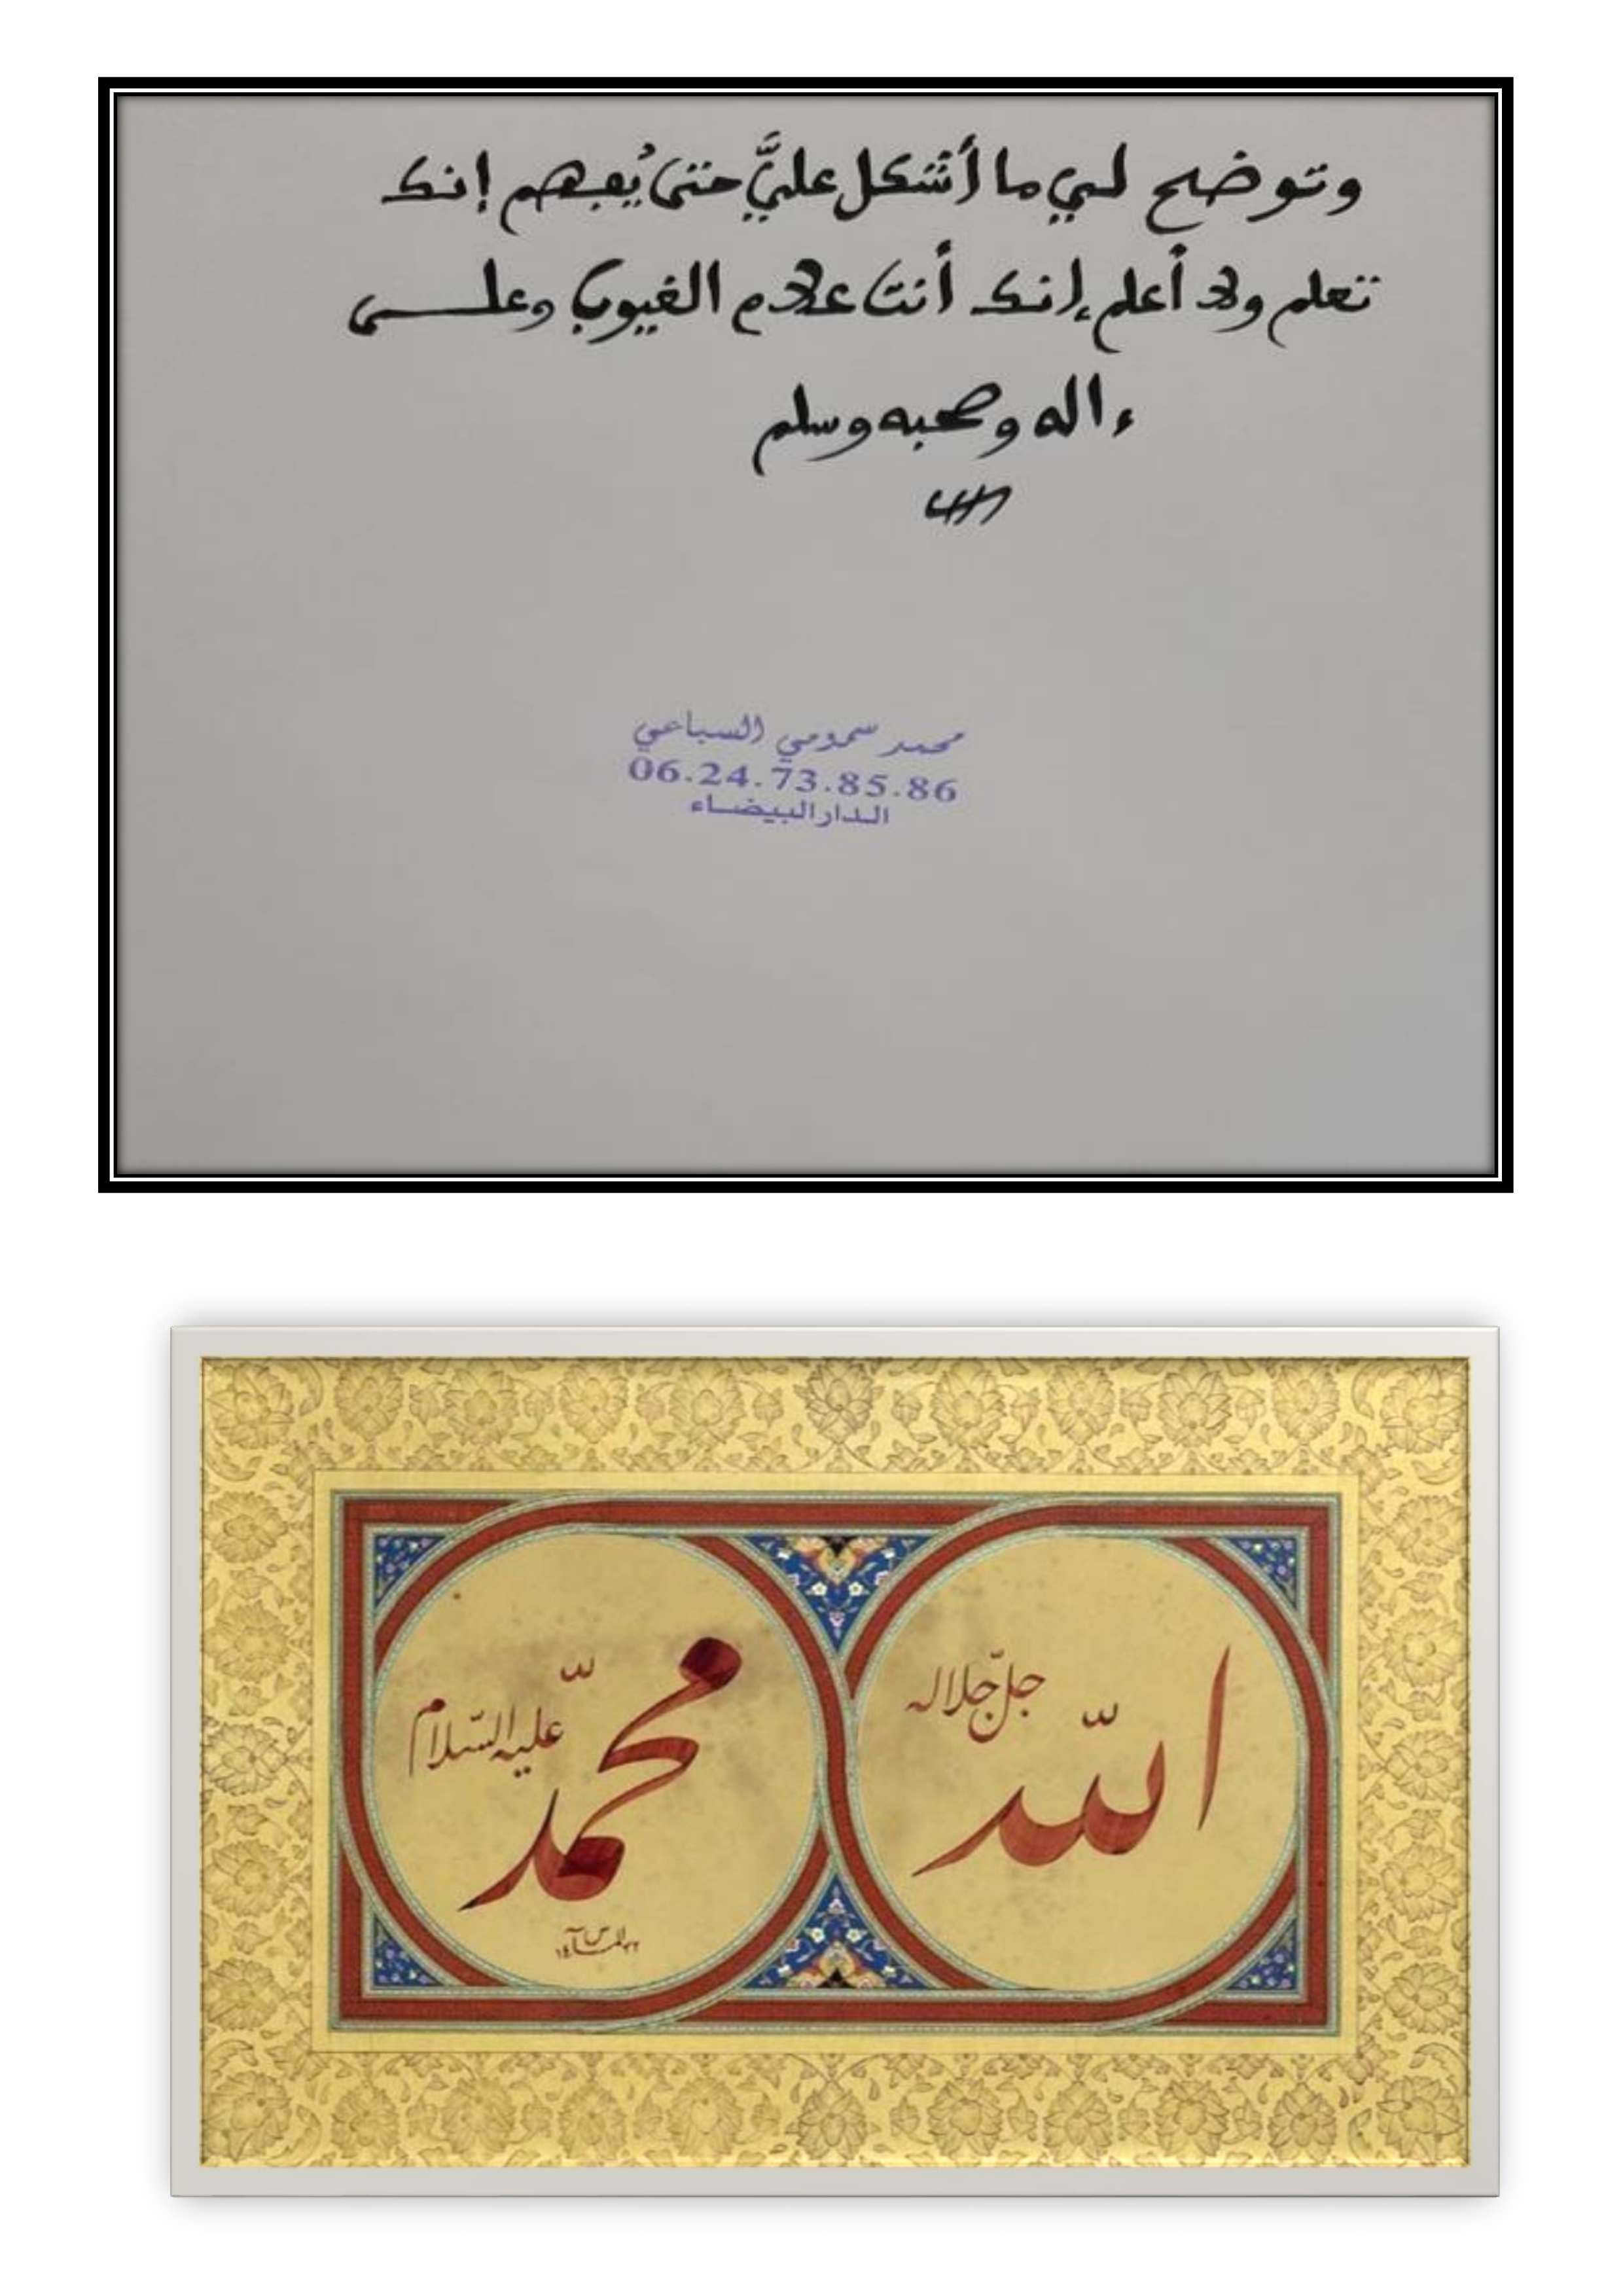 وتوضح لي ما أشكل عليَّ حتى يُفهم إنك
تعلم ولا أعلم إنك أنت علام الغيوب وعلى
ءاله وصحبه وسلم
محمد سمومي السباعي
06.24.73.85.86
الدار البيضاء
الله
جلّ جلاله
محمّد
عليه السّلام